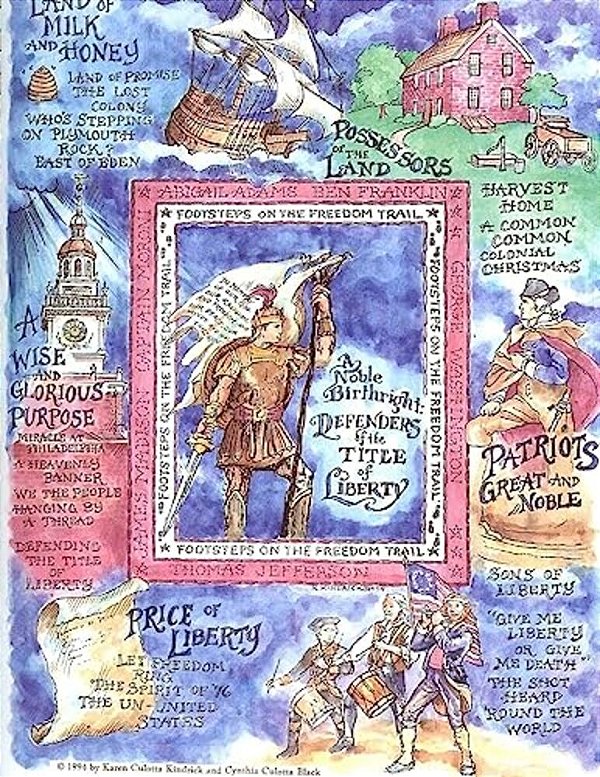 LAND OF
MILK
AND HONEY
LAND OF PROMISE
THE LOST
COLONY
WHO'S STEPPING
ON PLYMOUTH
ROCK?
EAST OF EDEN
POSSESSORS
OF THE
LAND
HARVEST
HOME
A COMMON
COMMON
COLONIAL
CHRISTMAS
ABIGAIL ADAMS BEN FRANKLIN
GEORGE WASHINGTON
THOMAS JEFFERSON
JAMES MADISON CAPTAIN MORONI
FOOTSTEPS ON THE FREEDOM TRAIL
FOOTSTEPS ON THE FREEDOM TRAIL
FOOTSTEPS ON THE FREEDOM TRAIL
FOOTSTEPS ON THE FREEDOM TRAIL
A
Noble
Birthright:
DEFENDERS
of the
TITLE
of
LIBERTY
A
WISE
AND
GLORIOUS
PURPOSE
MIRACLE AT
PHILADELPHIA
A HEAVENLY
BANNER
WE THE PEOPLE
HANGING BY
A THREAD
DEFENDING
THE TITLE
LIBERTY
PATRIOTS
GREAT AND
NOBLE
SONS OF
LIBERTY
"GIVE ME
LIBERTY
OR GIVE
ME DEATH"
THE SHOT
HEARD
'ROUND THE
WORLD
PRICE OF
LIBERTY
LET FREEDOM
RING
THE SPIRIT OF '76
THE UN-UNITED
STATES
© 1994 by Karen Culotta Kindrick and Cynthia Culotta Black